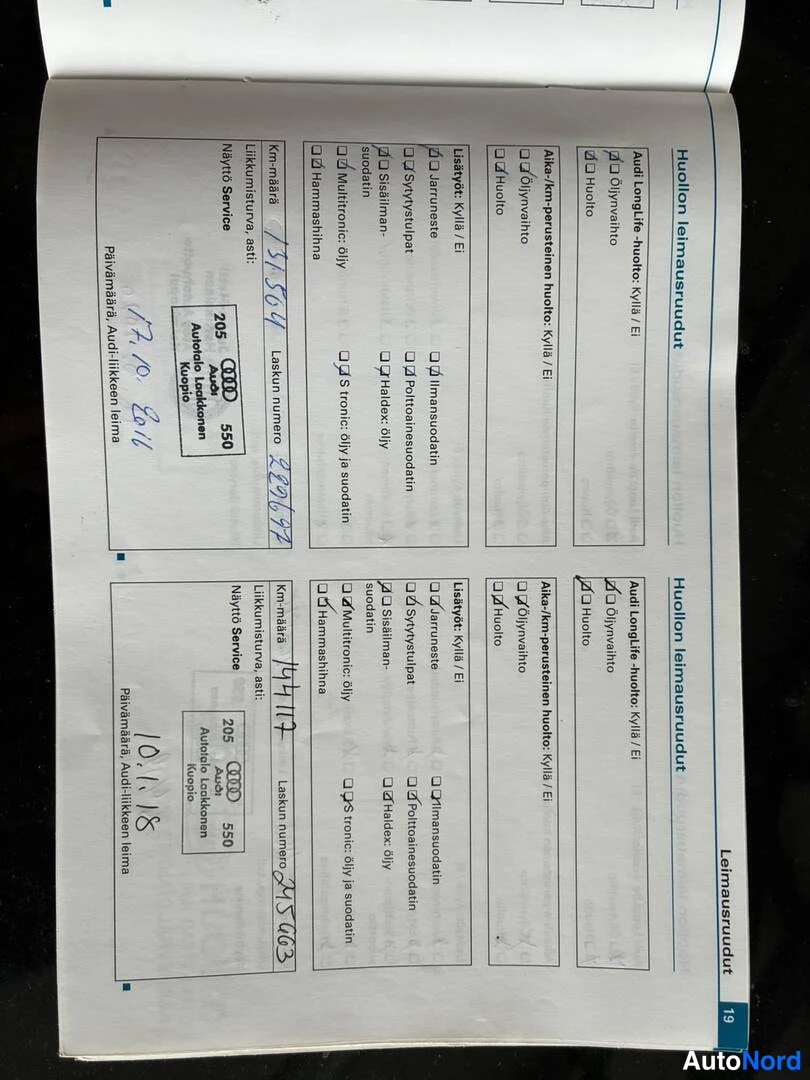 Leimausruudut
19
Huollon leimausruudut
Audi LongLife -huolto: Kyllä / Ei
Öljynvaihto
Huolto
Aika-/km-perusteinen huolto: Kyllä / Ei
Öljynvaihto
Huolto
Lisätyöt: Kyllä / Ei
Jarruneste
Ilmansuodatin
Sytytystulpat
Polttoainesuodatin
Sisäilman-
suodatin
Haldex: öljy
Multitronic: öljy
S tronic: öljy ja suodatin
Hammashihna
Km-määrä 131.504 Laskun numero 229697
Liikkumisturva, asti:
Näyttö Service
205 550
Audi
Autotalo Laakkonen
Kuopio
17.10.2016
Päivämäärä, Audi-liikkeen leima
Huollon leimausruudut
Audi LongLife -huolto: Kyllä / Ei
Öljynvaihto
Huolto
Aika-/km-perusteinen huolto: Kyllä / Ei
Öljynvaihto
Huolto
Lisätyöt: Kyllä / Ei
Jarruneste
Ilmansuodatin
Sytytystulpat
Polttoainesuodatin
Sisäilman-
suodatin
Haldex: öljy
Multitronic: öljy
S tronic: öljy ja suodatin
Hammashihna
Km-määrä 144117 Laskun numero 245663
Liikkumisturva, asti:
Näyttö Service
205 550
Audi
Autotalo Laakkonen
Kuopio
10.1.18
Päivämäärä, Audi-liikkeen leima
AutoNord